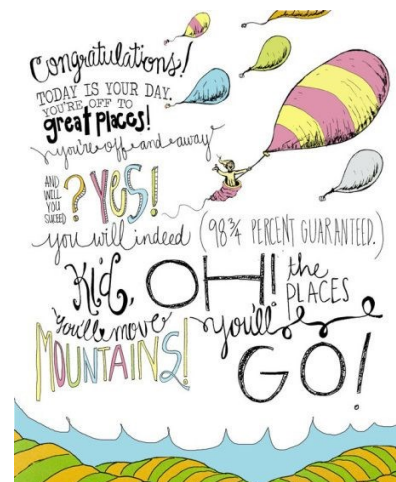 Congratulations!
TODAY IS YOUR DAY.
YOU'RE OFF TO
great places!
you're off and away
AND WILL YOU SUCEED? YES!
you will indeed (98¾ PERCENT GUARANTEED.)
Kid,
you'll move
MOUNTAINS!
OH! the
PLACES
you'll
GO!